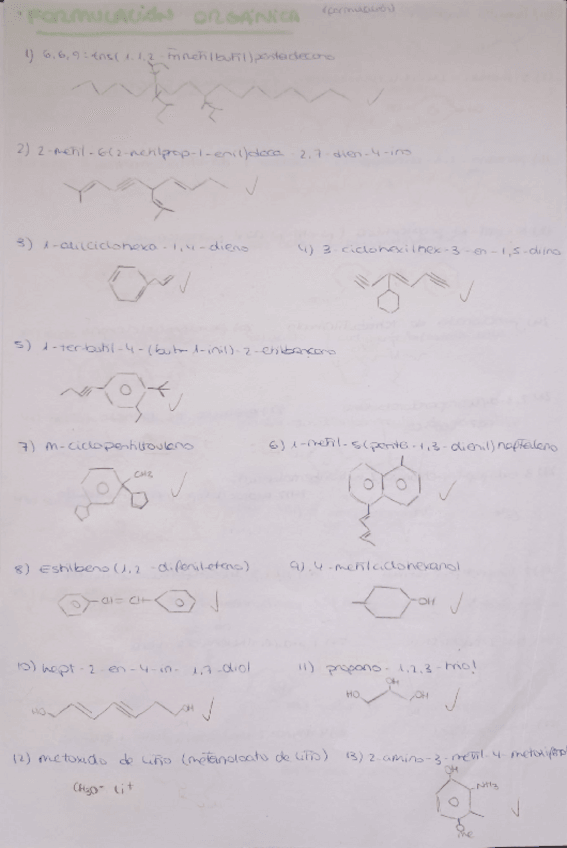 FORMULACIÓN ORGÁNICA (formulación)
1) 6,6,9-tris(1,1,2-trimetilbutil)pentadecano
2) 2-metil-6(2-metilprop-1-enil)deca-2,7-dien-4-ino
3) 1-alilciclohexa-1,4-dieno 4) 3-ciclohexilhex-3-en-1,5-diino
5) 1-terbutil-4-(but-1-inil)-2-etilbenceno
7) m-ciclopentiltolueno 6) 1-metil-5(penta-1,3-dienil)naftaleno
CH3
8) Estilbeno (1,2-difenileteno) 9) 4-metilciclohexanol
CH=CH OH
10) hept-2-en-4-in-1,7-diol 11) propano-1,2,3-triol
HO OH HO OH OH
12) metoxido de litio (metanolato de litio) 13) 2-amino-3-metil-4-metoxi
CH3O- Li+ OH NH3
OMe